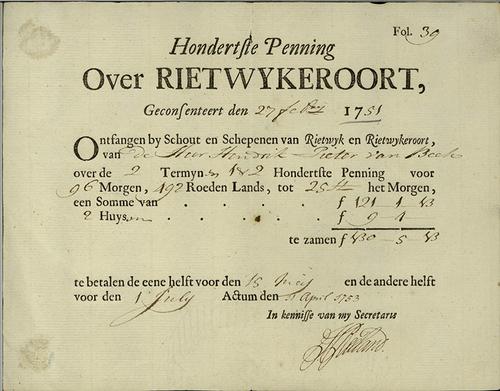 Fol. 39
Hondertste Penning
Over RIETWYKEROORT,
Geconsenteert den 27 feb 1751
Ontfangen by Schout en Schepenen van Rietwyk en Rietwykeroort,
van de Heer Hendrik Pieter van Beek
over de 2 Termyn 1&2 Hondertste Penning voor
96 Morgen, 492 Roeden Lands, tot 25 het Morgen,
een Somme van f 121 1 13
2 Huysen f 9 4
te zamen f 130 5 13
te betalen de eene helft voor den 15 Mey en de andere helft
voor den 1 July Actum den April 1753
In kennisse van my Secretaris